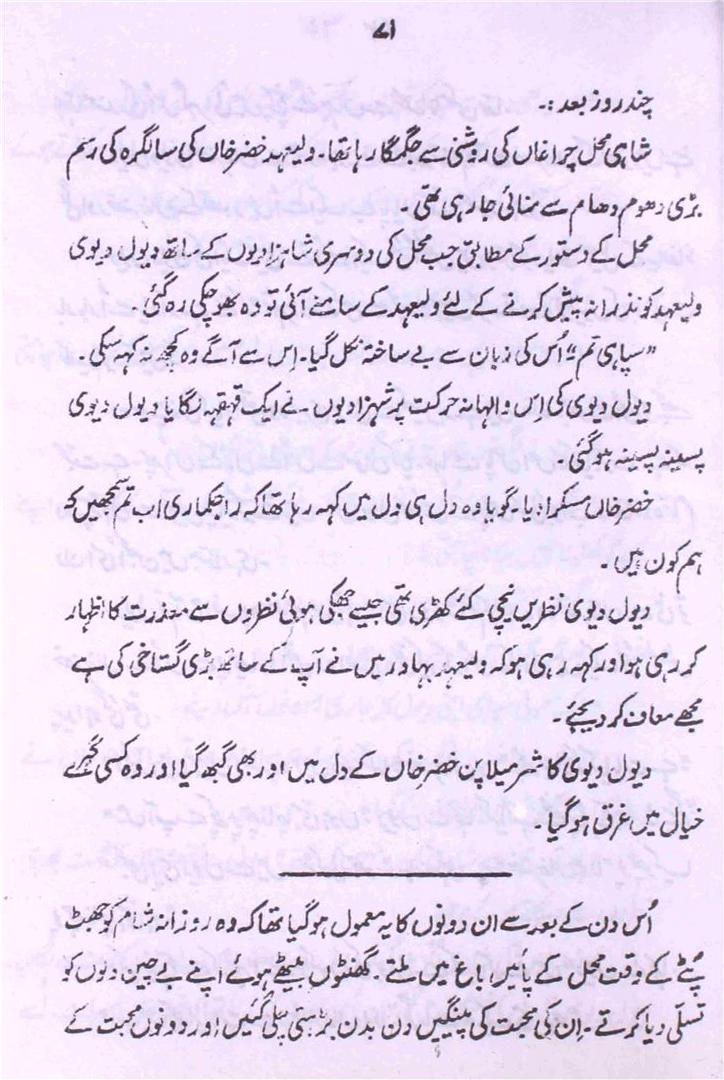 ۷۱
چند روز بعد:۔
شاہی محل چراغاں کی روشنی سے جگمگا رہا تھا۔ ولیعہد خضر خاں کی سالگرہ کی رسم
بڑی دھوم دھام سے منائی جا رہی تھی۔
محل کے دستور کے مطابق جب محل کی دوسری شاہزادیوں کے ساتھ دیول دیوی
ولیعہد کو نذرانہ پیش کرنے کے لئے ولیعہد کے سامنے آئی تو وہ بھوچکی رہ گئی۔
"سپاہی تم" اُس کی زبان سے بے ساختہ نکل گیا۔ اِس سے آگے وہ کچھ نہ کہہ سکی۔
دیول دیوی کی اِس والہانہ حرکت پر شہزادیوں۔ نے ایک قہقہہ لگایا دیول دیوی
پسینہ پسینہ ہو گئی۔
خضر خاں مسکرا دیا۔ گویا وہ دل ہی دل میں کہہ رہا تھا کہ راجکماری اب تم سمجھیں کہ
ہم کون ہیں۔
دیول دیوی نظریں نیچی کئے کھڑی تھی جیسے جھکی ہوئی نظروں سے معذرت کا اظہار
کر رہی ہو اور کہہ رہی ہو کہ ولیعہد بہادر میں نے آپ کے ساتھ بڑی گستاخی کی ہے
مجھے معاف کر دیجئے۔
دیول دیوی کا شرمیلا پن خضر خاں کے دل میں اور بھی کُھبھ گیا اور وہ کسی گہرے
خیال میں غرق ہو گیا۔
اُس دن کے بعد سے ان دونوں کا یہ معمول ہو گیا تھا کہ وہ روزانہ شام کو جھٹ
پُٹے کے وقت محل کے پائیں باغ میں ملتے گھنٹوں بیٹھے ہوئے اپنے بے چین دلوں کو
تسلّی دیا کرتے۔ اِن کی محبت کی پینگیں دن بدن بڑھتی چلی گئیں اور دونوں محبت کے